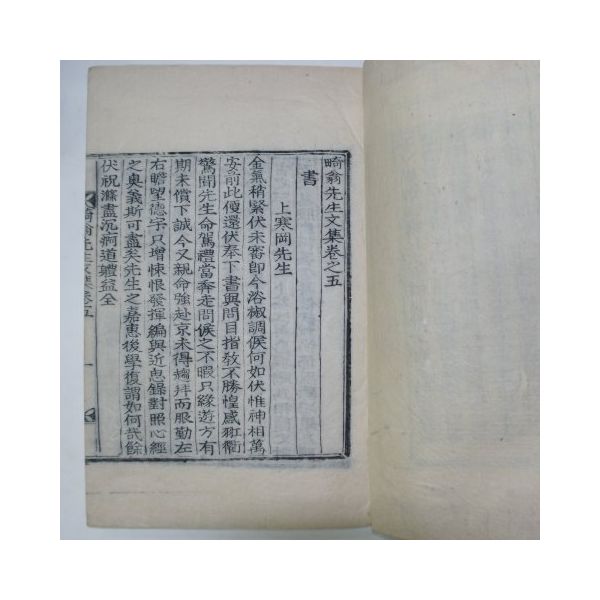 畸翁先生文集卷之五
書
上寒岡先生
金氣稍緊伏未審即今浴椒調候何如伏惟神相萬
安前此傻還伏奉下書與問目指教不勝惶感驅衢
驚聞先生命駕禮當奔走問候之不暇只緣遊方有
期未償下誠今又親命強赴京未得趨拜而服勤左
右瞻望德宇只增悚恨發揮編與近思錄對照心經
之奧義斯可盡矣先生之嘉惠後學復謂如何哉餘
伏祝滌盡沉痾道軆益全
畸翁先生文集卷五
一